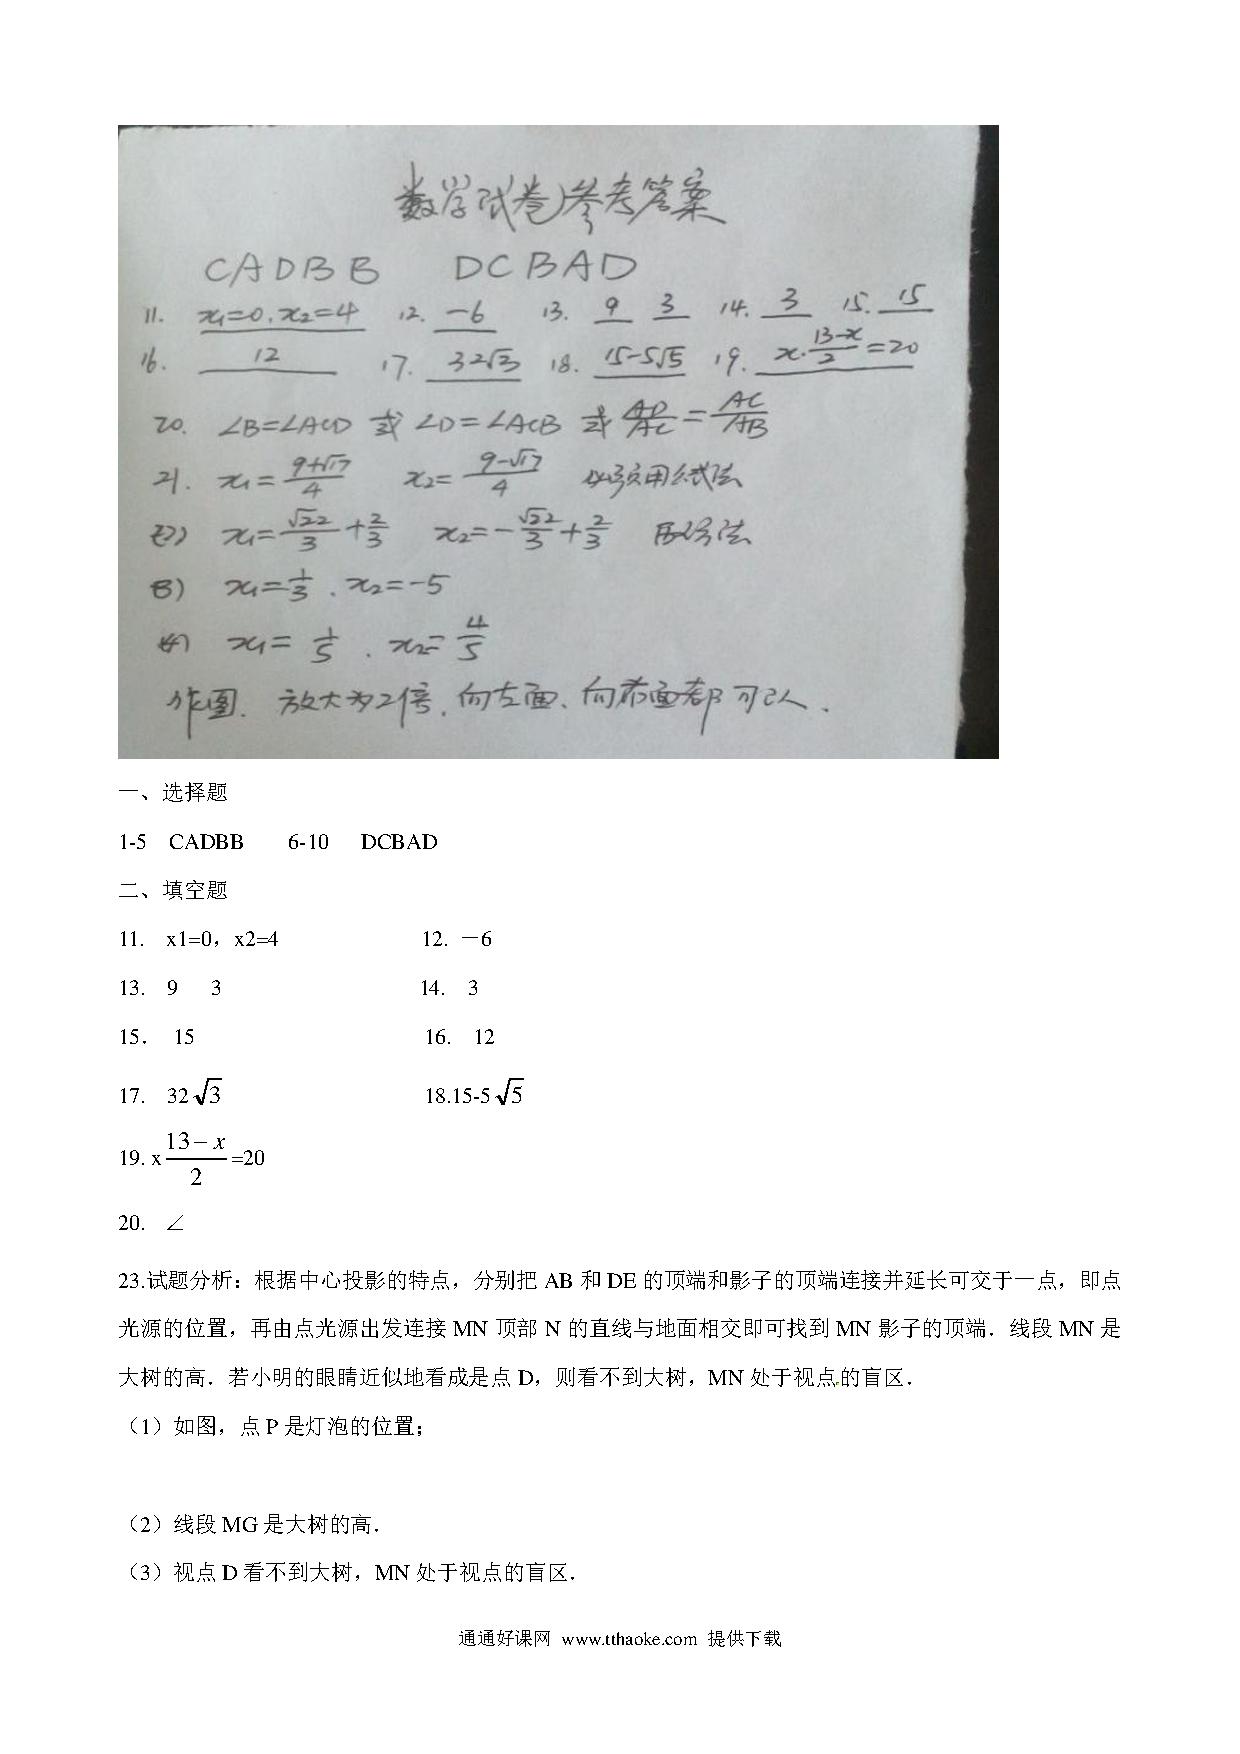 数学试卷参考答案
CADBB DCBAD
11. x₁=0.x₂=4 12. -6 13. 9 3 14. 3 15. 15
16. 12 17. 32√3 18. 15-5√5 19. x·(13-x)/2=20
20. ∠B=∠ACD 或 ∠D=∠ACB 或 AD/AC=AC/AB
21. x₁=(9+√17)/4 x₂=(9-√17)/4 必须用公式法
(2) x₁=√22/3+2/3 x₂=-√22/3+2/3 配方法
(3) x₁=1/3.x₂=-5
(4) x₁=1/5.x₂=4/5
作图.放大为2倍.向左面、向右面都可以.
一、选择题
1-5 CADBB 6-10 DCBAD
二、填空题
11. x1=0，x2=4 12. －6
13. 9 3 14. 3
15． 15 16. 12
17. 32√3 18.15-5√5
19. x(13-x)/2=20
20. ∠
23.试题分析：根据中心投影的特点，分别把 AB 和 DE 的顶端和影子的顶端连接并延长可交于一点，即点
光源的位置，再由点光源出发连接 MN 顶部 N 的直线与地面相交即可找到 MN 影子的顶端．线段 MN 是
大树的高．若小明的眼睛近似地看成是点 D，则看不到大树，MN 处于视点的盲区．
（1）如图，点 P 是灯泡的位置；
（2）线段 MG 是大树的高．
（3）视点 D 看不到大树，MN 处于视点的盲区．
通通好课网 www.tthaoke.com 提供下载